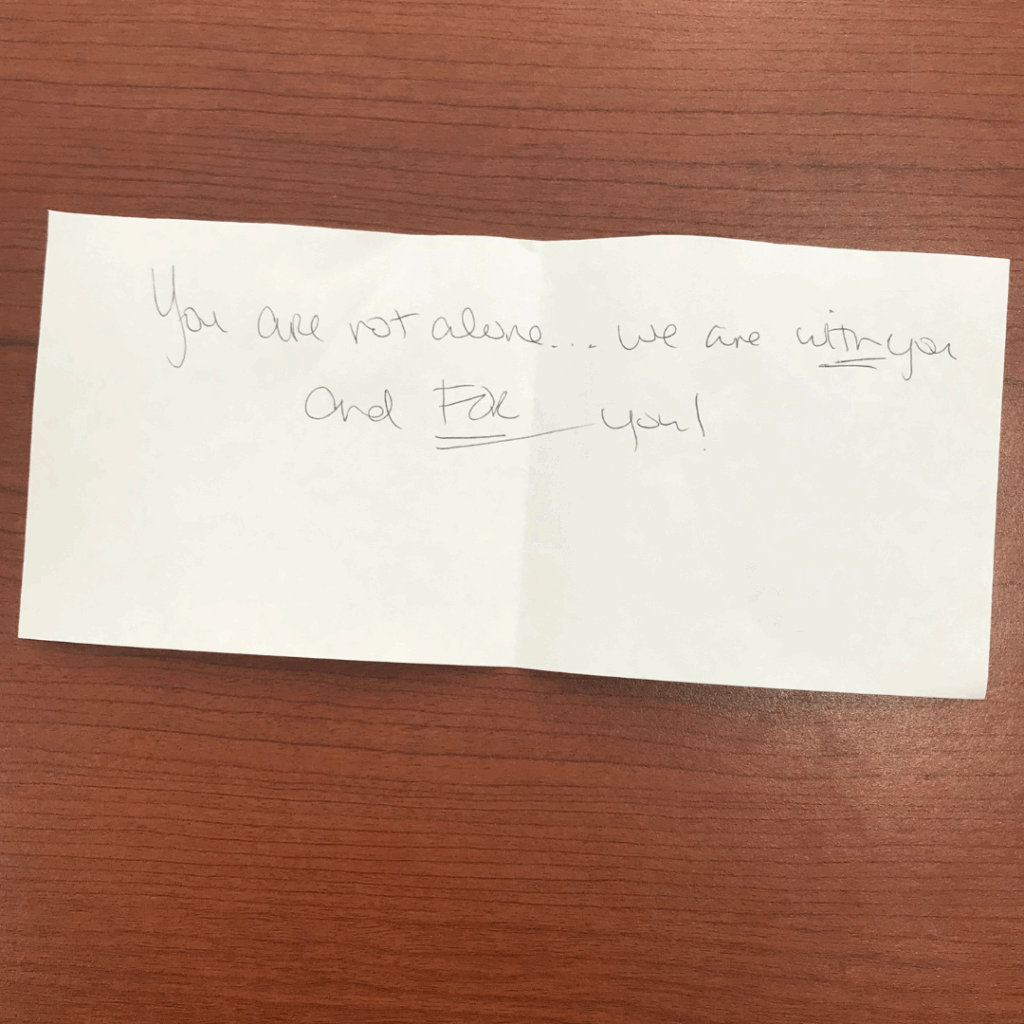 You are not alone... we are with you
and FOR you!